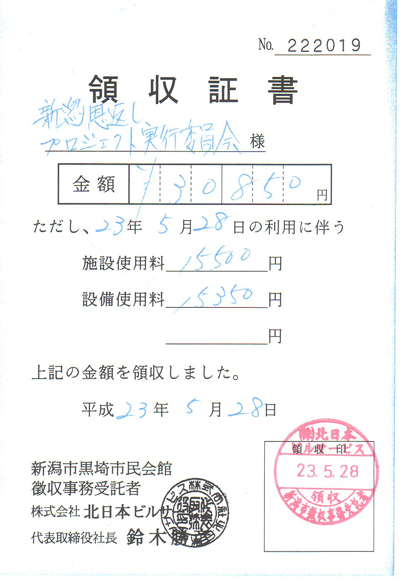 No. 222019
領収証書
新潟恩返し
プロジェクト実行委員会 様
金額 ¥30850円
ただし、23年5月28日の利用に伴う
施設使用料 15500円
設備使用料 15350円
円
上記の金額を領収しました。
平成23年5月28日
新潟市黒埼市民会館
徴収事務受託者
株式会社 北日本ビルサ
代表取締役社長 鈴木
領収印
㈱北日本
ビルサービス
23.5.28
領収